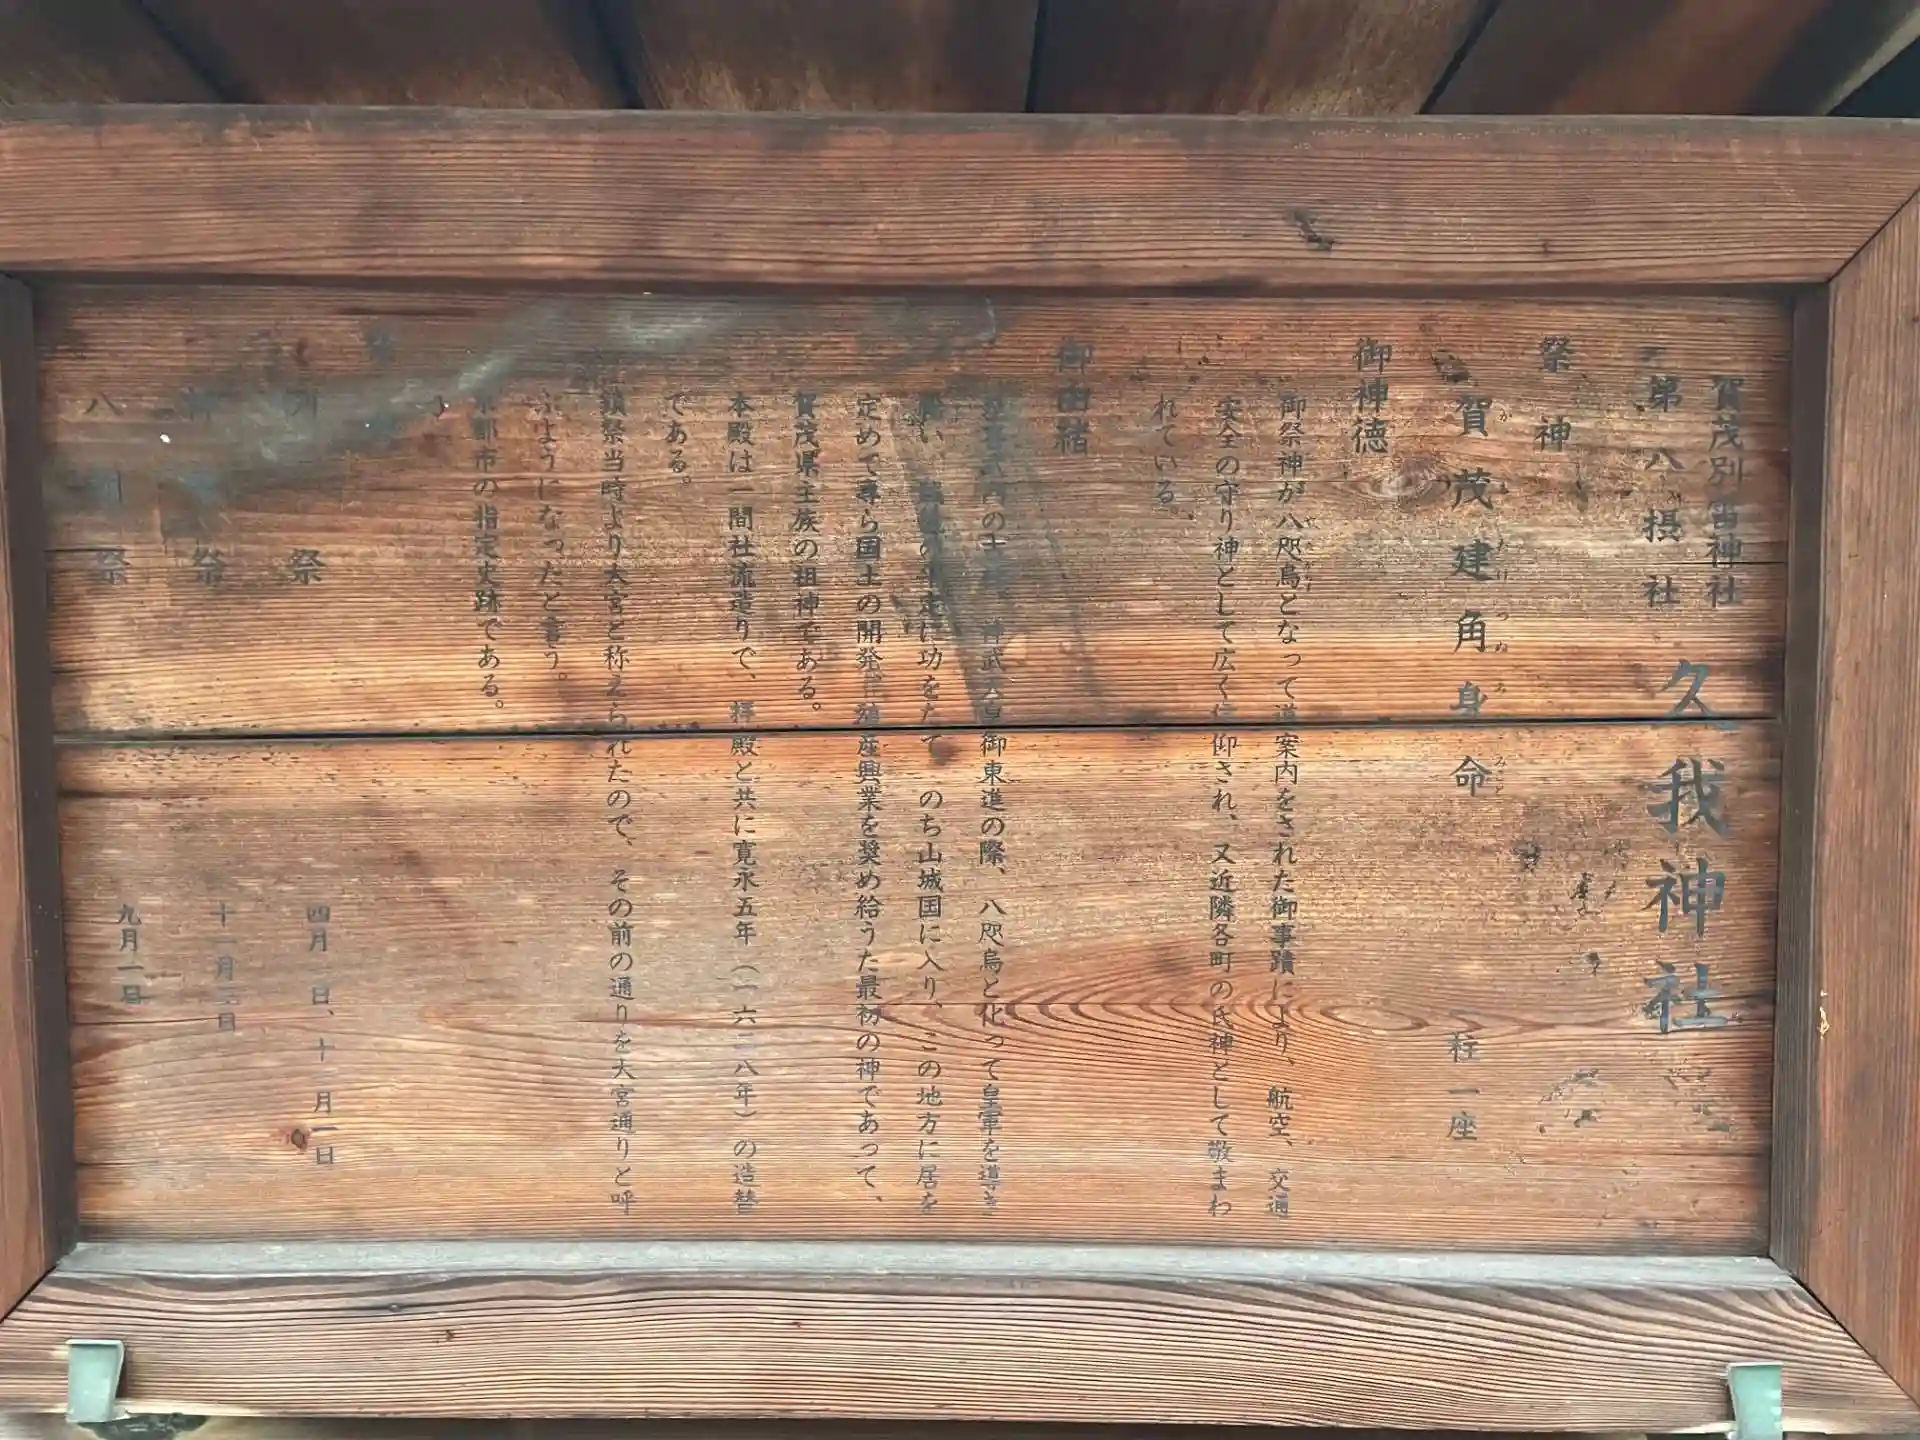 賀茂別雷神社
第八摂社
久我神社
祭神
賀茂建角身命
か も たけ つぬ み みこと
一座
御神徳
御祭神が八咫烏となって道案内をされた御事蹟により、航空、交通
安全の守り神として広く信仰され、又近隣各町の氏神として敬まわ
れている。
御由緒
の 神武天皇御東進の際、八咫烏と化って皇軍を導き
い の平定に功をたて のち山城国に入り、この地方に居を
定めて専ら国土の開発 殖産興業を奨め給うた最初の神であって、
賀茂県主族の祖神である。
本殿は一間社流造りで、拝殿と共に寛永五年(一六二八年)の造替
である。
鎮祭当時より大宮と称えられたので、その前の通りを大宮通りと呼
ぶようになったと言う。
京都市の指定史跡である。
例 祭 四月一日、十一月一日
祭 十一月 日
八朔祭 九月一日